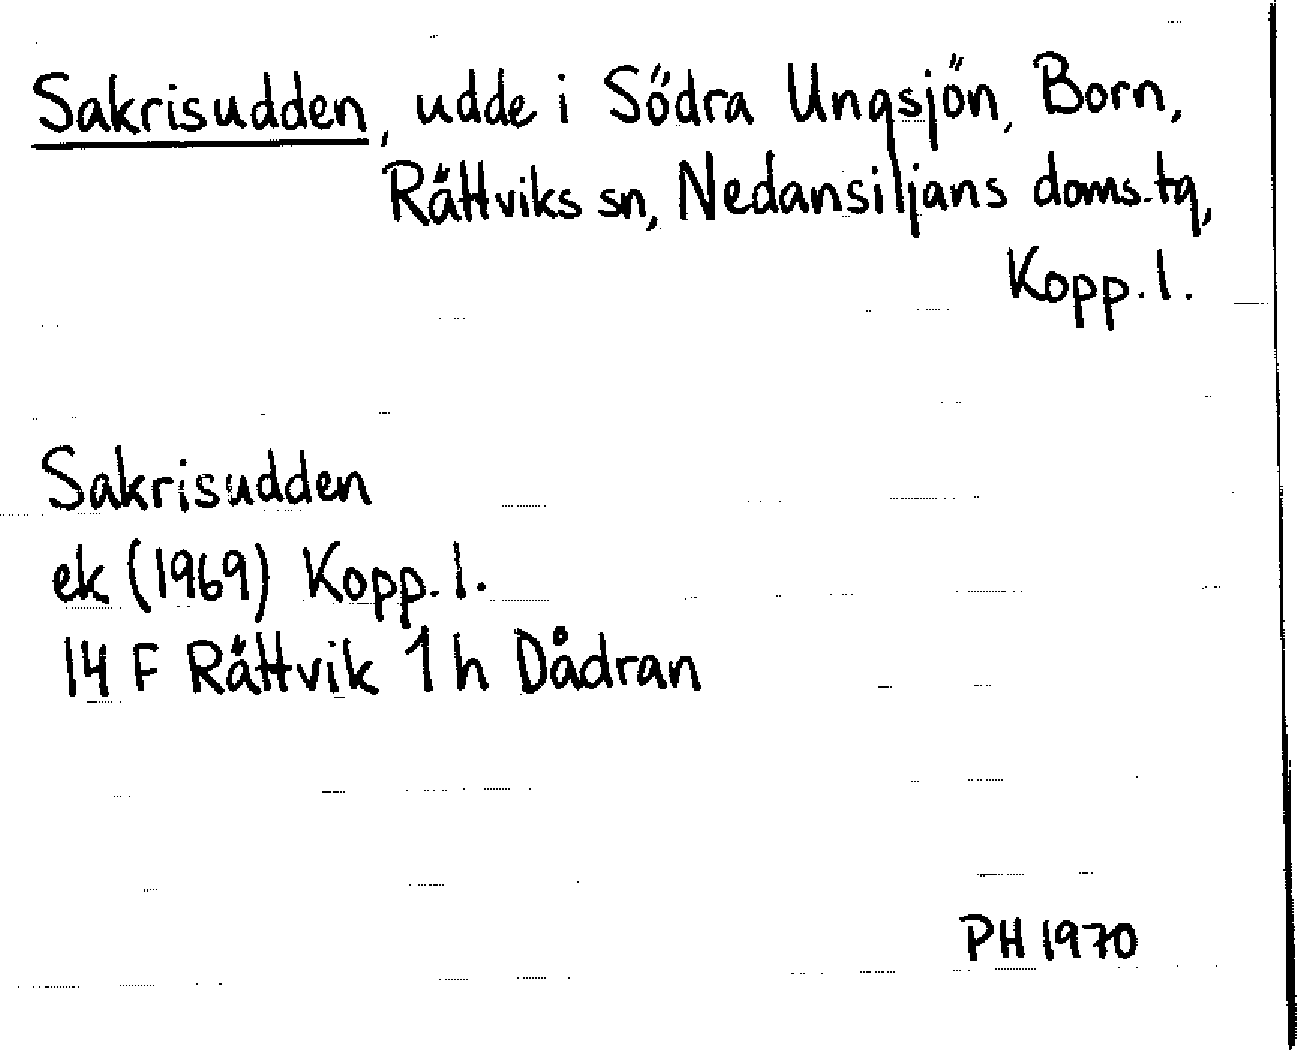 Sakrisudden, udde i Södra Ungsjön, Born,
Rättviks sn, Nedansiljans doms.tg,
Kopp. l.
Sakrisudden
ek (1969) Kopp. l.
14 F Rättvik 1 h Dådran
PH 1970